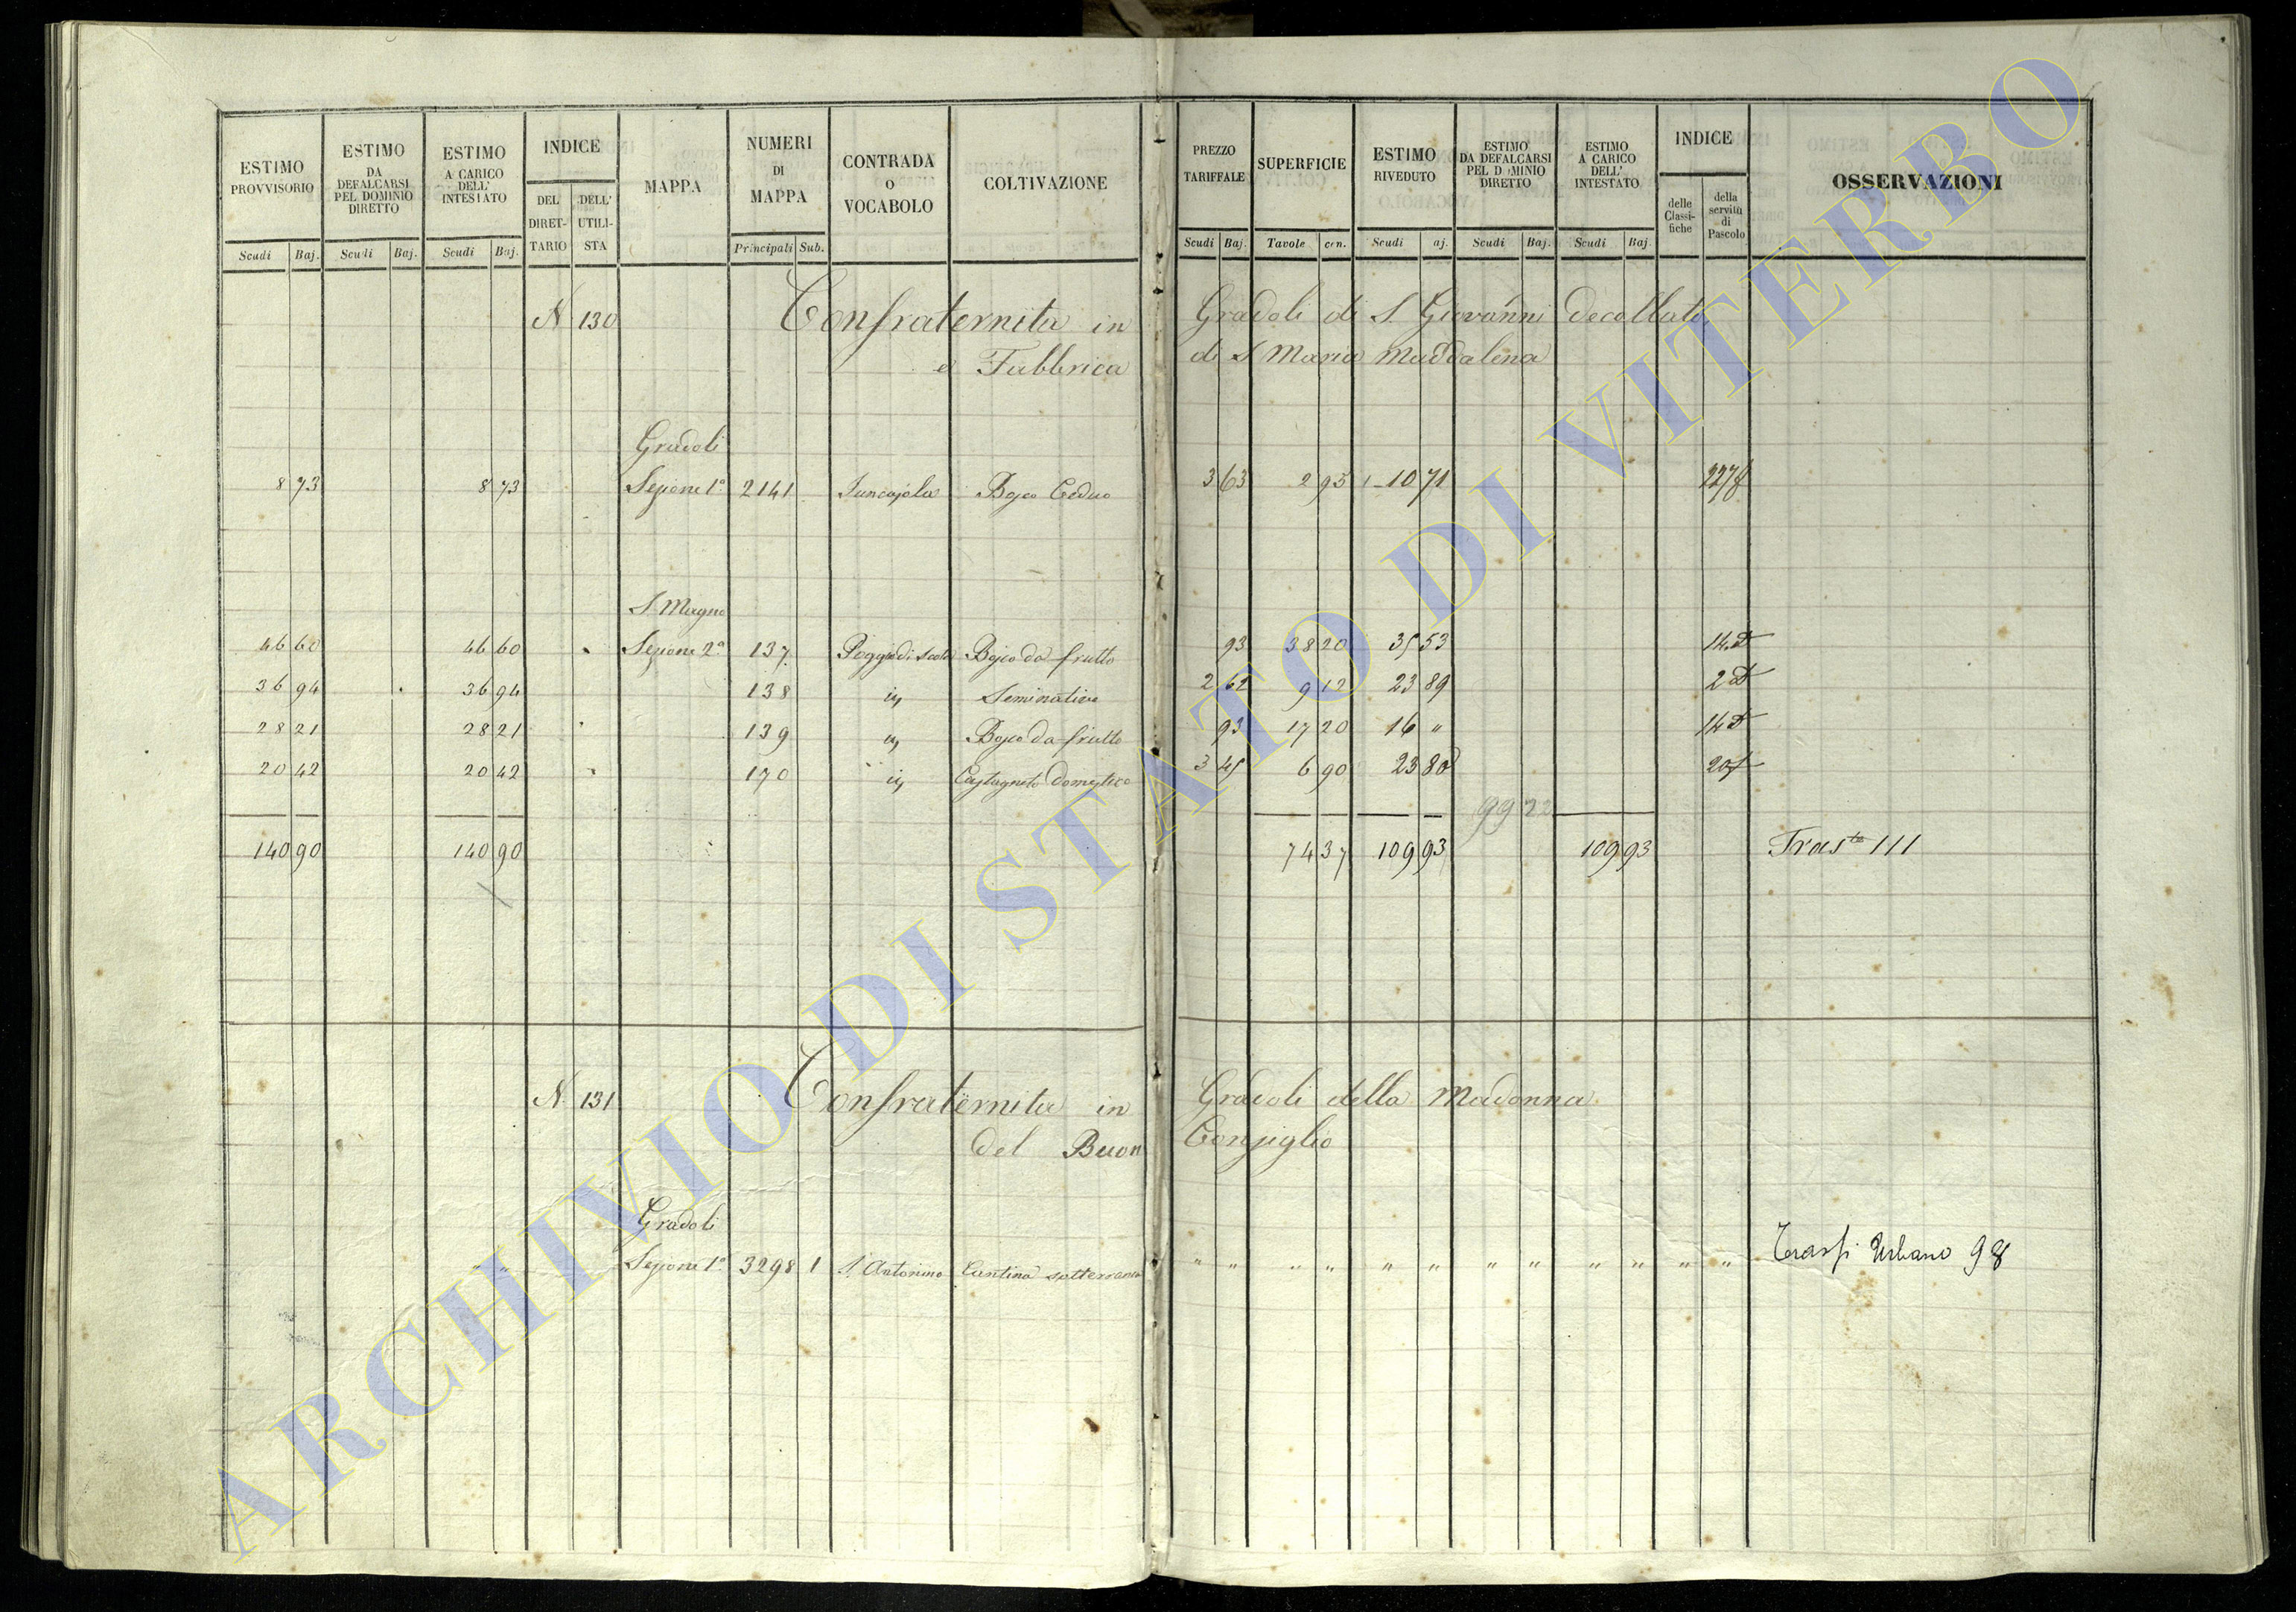 ESTIMO PROVVISORIO | ESTIMO DA DEFALCARSI PEL DOMINIO DIRETTO | ESTIMO A CARICO DELL' INTESTATO | INDICE | MAPPA | NUMERI DI MAPPA | CONTRADA O VOCABOLO | COLTIVAZIONE | PREZZO TARIFFALE | SUPERFICIE | ESTIMO RIVEDUTO | ESTIMO DA DEFALCARSI PEL D MINIO DIRETTO | ESTIMO A CARICO DELL' INTESTATO | INDICE | OSSERVAZIONI
DEL DIRETTARIO | DELL' UTILISTA | delle Classifiche | della servitù di Pascolo
Scudi | Baj. | Scudi | Baj. | Scudi | Baj. | Principali | Sub. | Scudi | Baj. | Tavole | cen. | Scudi | aj. | Scudi | Baj. | Scudi | Baj.
N 130 Confraternita in Gradoli di S. Giovanni decollato
e Fabbrica di S Maria Maddalena
Gradoli
8 73 | 8 73 | Sezione 1ª | 2141 | | Bosco Ceduo | 3 63 | 2 95 | 10 71
S Magno
46 60 | 46 60 | Sezione 2ª | 137 | Poggio di | Bosco da frutto | 93 | 38 20 | 35 53 | 14
36 94 | 36 94 | 138 | | Seminativo | 2 62 | 9 12 | 23 89 | 2
28 21 | 28 21 | 139 | | Bosco da frutto | 93 | 17 20 | 16 " | 14
20 42 | 20 42 | 170 | | Castagneto Domestico | 3 45 | 6 90 | 23 80 | 20
99 22
140 90 | 140 90 | 74 37 | 109 93 | 109 93 | Tras.to 111
N. 131 Confraternita in Gradoli della Madonna
del Buon Consiglio
Gradoli
" " | Sezione 1ª | 3298 | 1 | S. Antonino | Cantina sotterranea | " " | " " | " " | " " | " " | " " | Urbano 98
ARCHIVIO DI STATO DI VITERBO